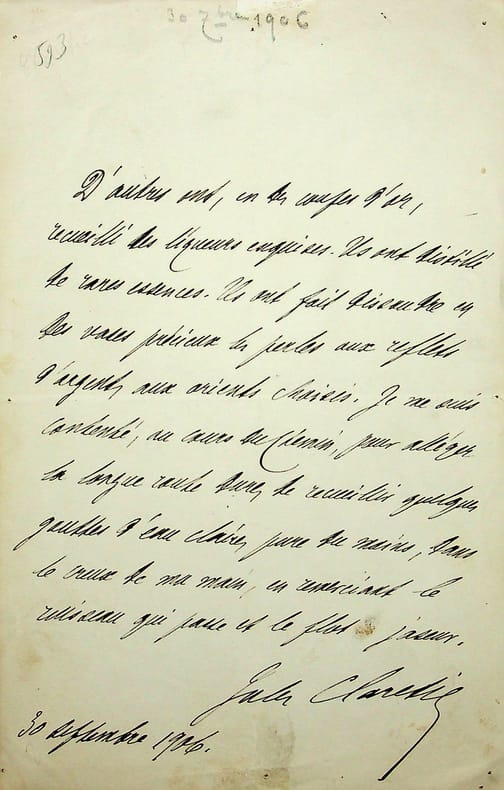 30 7bre 1906
593
D'autres ont, en des coupes d'or,
recueilli des liqueurs exquises. Ils ont distillé
de rares essences. Ils ont fait dissoudre en
des vases précieux les perles aux reflets
d'argent, aux orients choisis. Je me suis
contenté, au cours du chemin, pour alléger
la longue route dure, de recueillir quelques
gouttes d'eau claire, pure du moins, dans
le creux de ma main, en remerciant le
ruisseau qui passe et le flot jaseur.
Jules Claretie
30 septembre 1906.